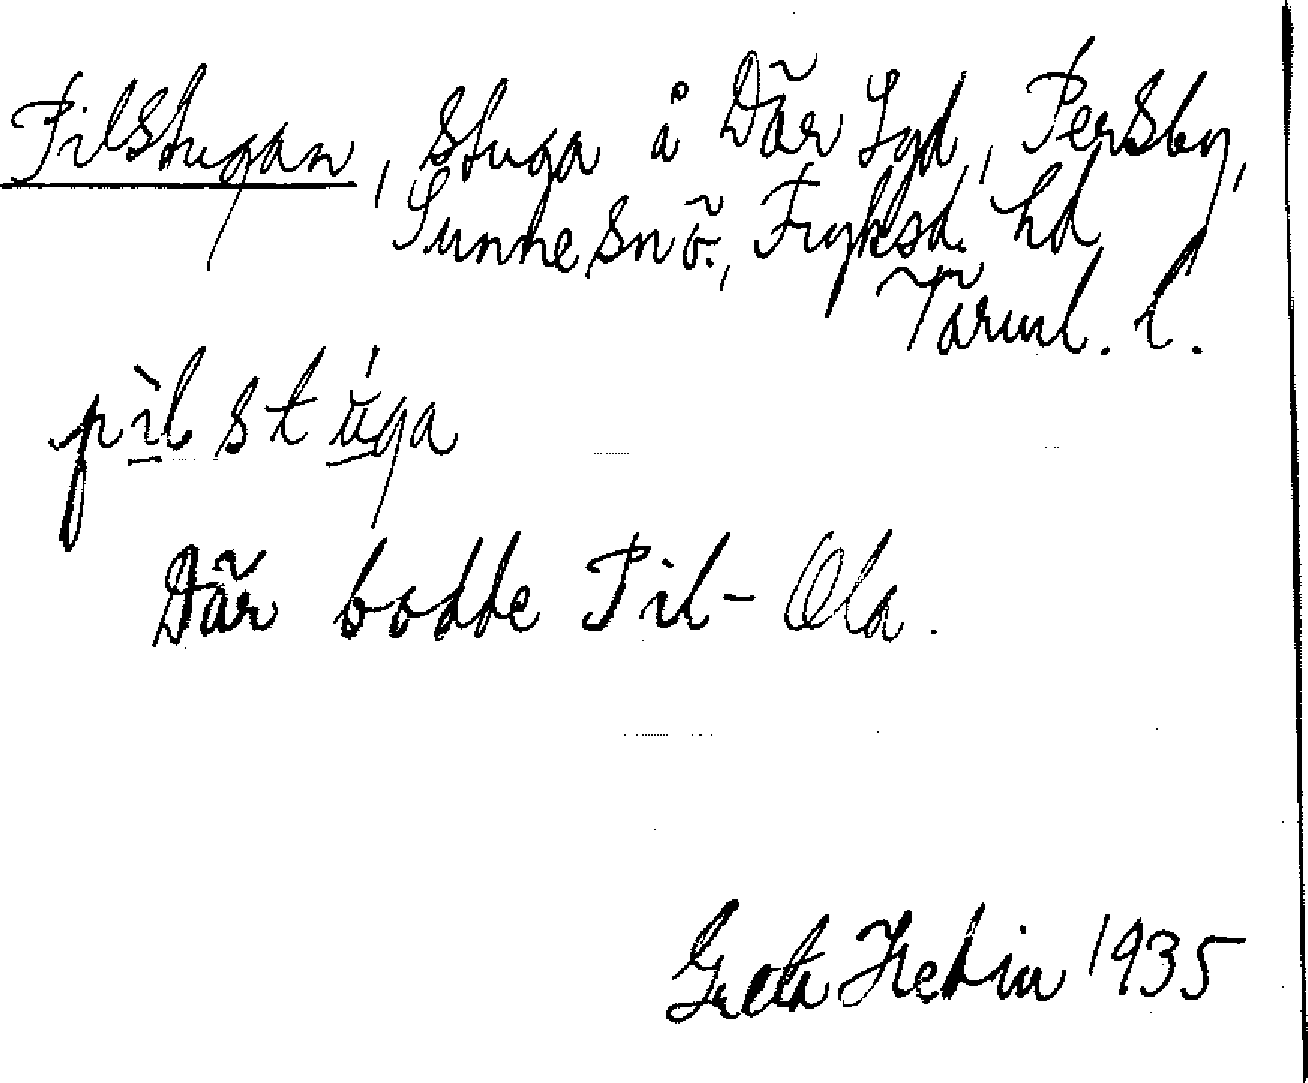 Pilstugan, stuga å Där Syd, Persby,
Sunne snö., Fryksd. hd
Värml. l.
pìlstúga
Där bodde Pil-Ola.
Greta Hedin 1935